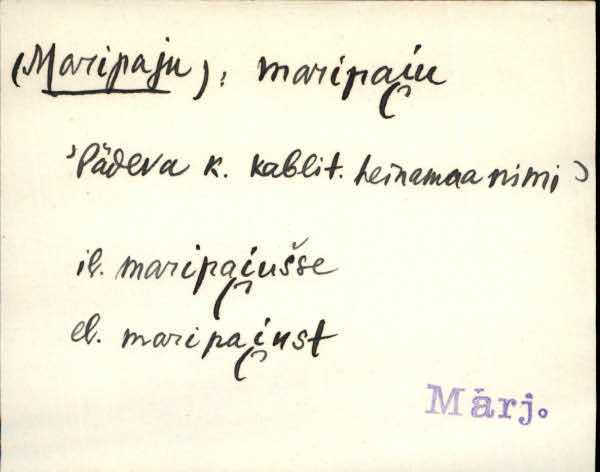 (Maripaju): maripai̯u
'Pädeva k. kablit. heinamaa nimi'
il. maripai̯ušse
el. maripai̯ust
Märj.